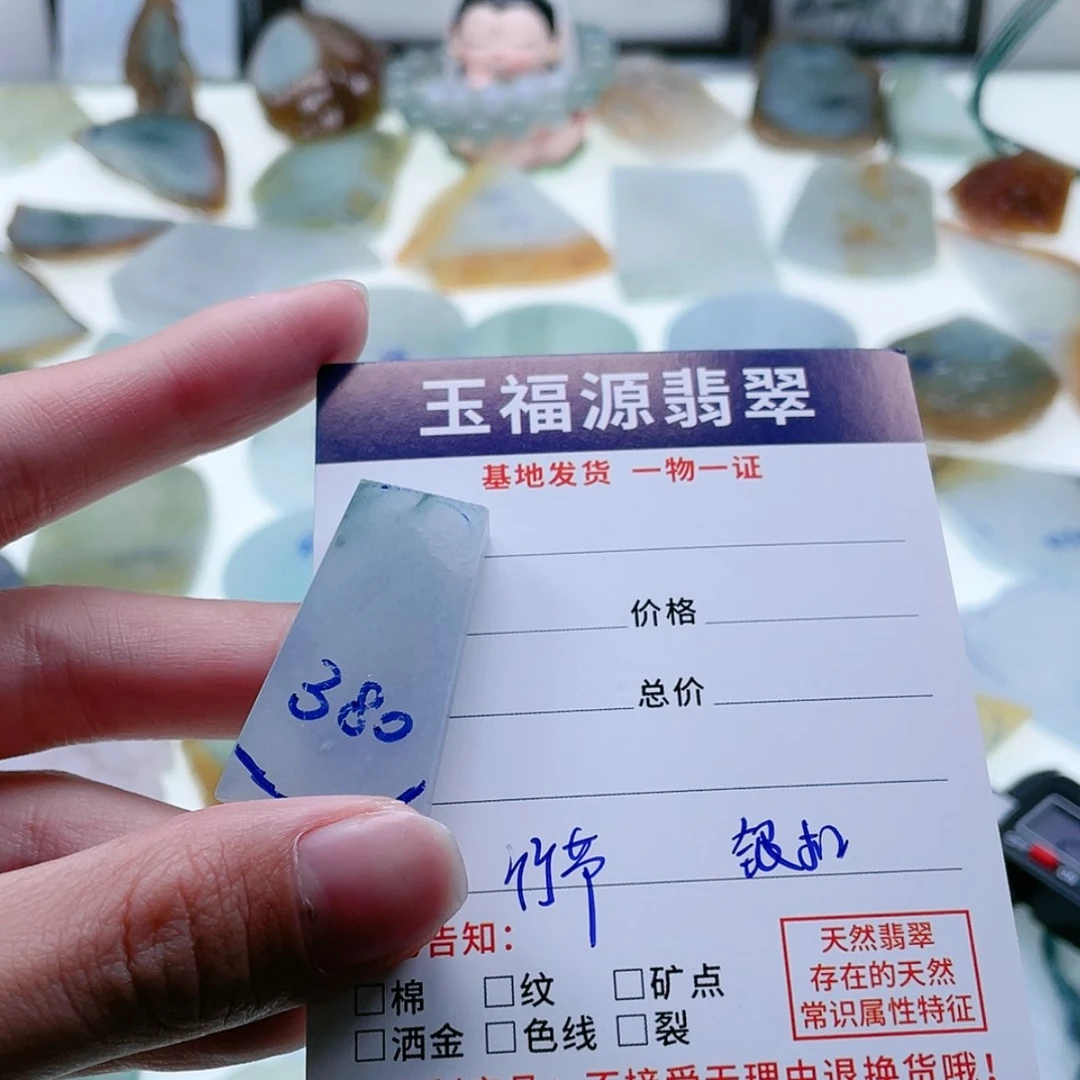 玉福源翡翠
基地发货 一物一证
380
价格
总价
竹节 银机
告知：
□棉 □纹 □矿点
□洒金 □色线 □裂
天然翡翠
存在的天然
常识属性特征
不接受无理由退换货哦！